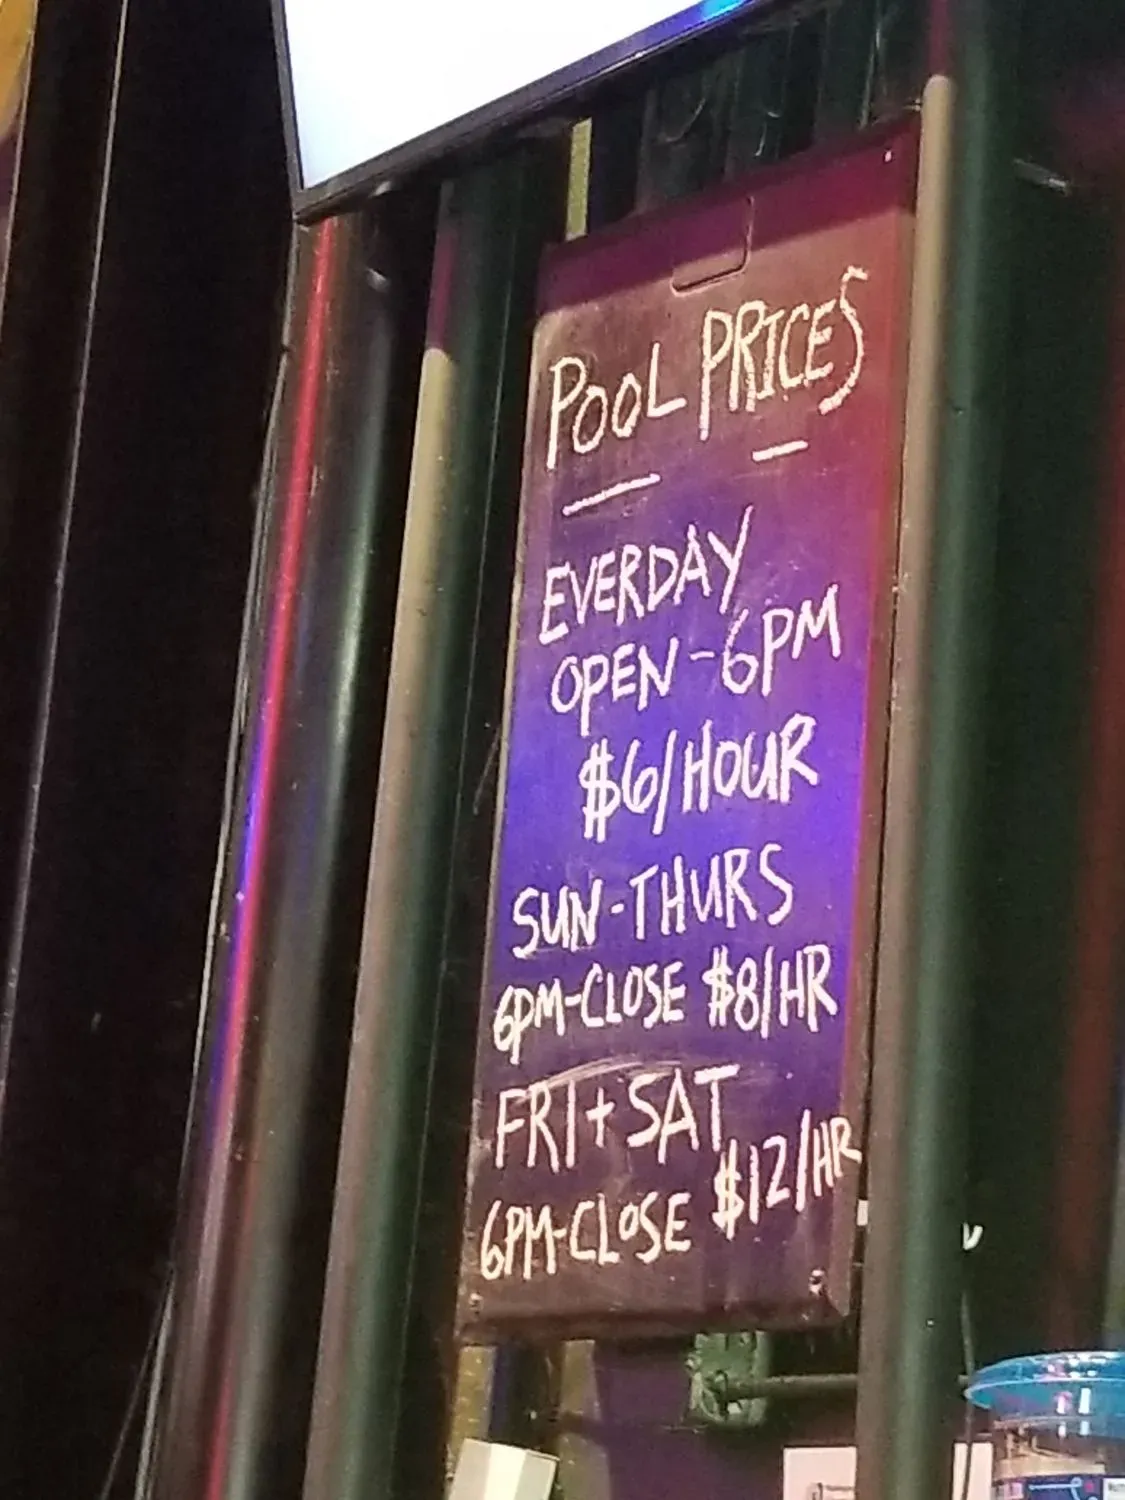 POOL PRICES
EVERDAY
OPEN-6PM
$6/HOUR
SUN-THURS
6PM-CLOSE $8/HR
FRI+SAT
6PM-CLOSE $12/HR